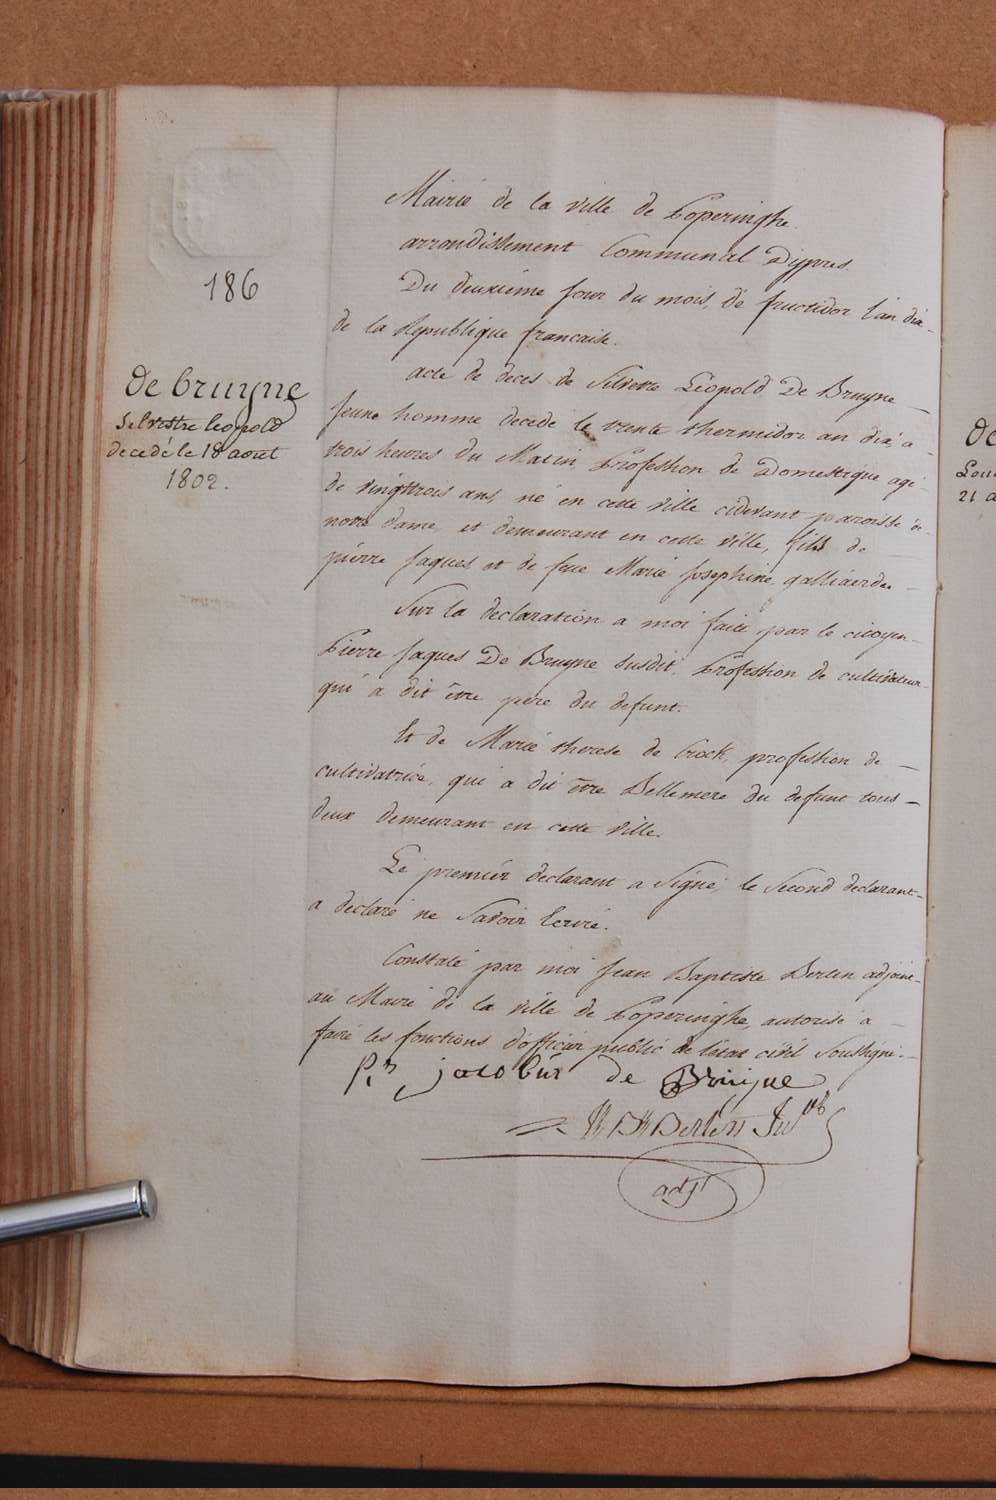 186
de bruyne
Silvestre leopold
decedé le 18 aout
1802.
Mairie de la ville de Poperinghe.
arrondissement Communal Dypres.
Du deuxieme jour du mois de fructidor l'an dix
de la Republique francaise.
acte de deces de Silvere Léopold De Bruyne
jeune homme decedé le trente thermidor an dix a
trois heures du Matin Profession de Domestique agé
de vingttrois ans, né en cette ville cidevant paroisse de
notre dame, et demeurant en cette ville, fils de
pierre jaques et de feue Marie josephine galliaerde.
Sur la declaration a moi faite par le citoyen
Pierre jaques De Bruyne susdit, Profession de cultivateur
qui a dit être pere du defunt.
Et de Marie therese de Crock, profession de
cultivatrice, qui a dit être Bellemere du defunt tous
deux demeurant en cette ville.
Le premier declarant a Signé, le Second declarant
a declaré ne Savoir Ecrire.
Constaté par moi Jean Baptiste Berten adjoint
au Maire de la ville de Poperinghe, autorisé a
faire les fonctions d'officier public de l'etat civil Soussigné.
P.r jacobus de Bruijne
Berten
adjt
De
Lou
21 a